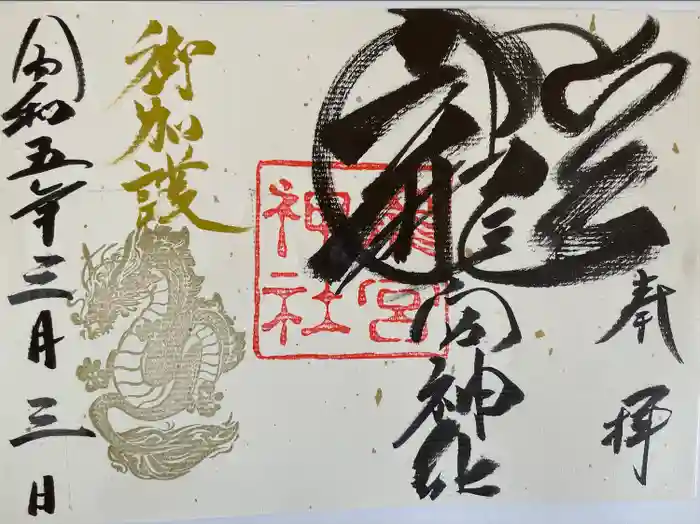 奉拝
龍宮神社
龍宮
神社
御加護
令和五年三月三日